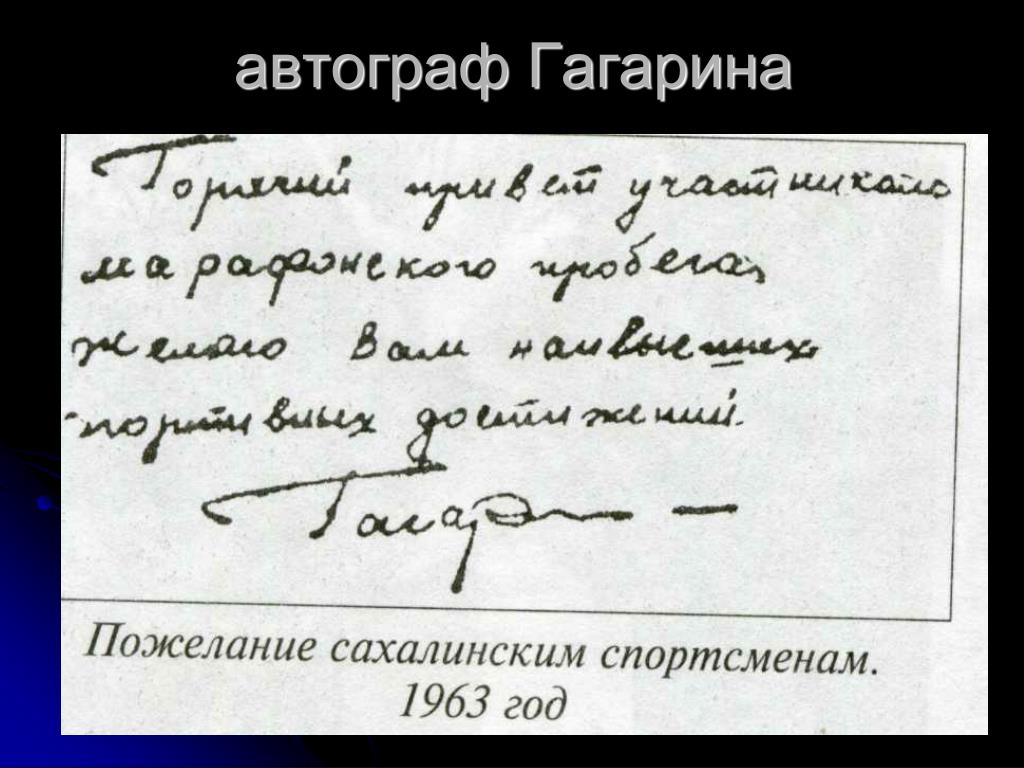 автограф Гагарина
Горячий привет участникам
марафонского пробега,
желаю Вам наивысших
спортивных достижений.
Гагарин –
Пожелание сахалинским спортсменам.
1963 год